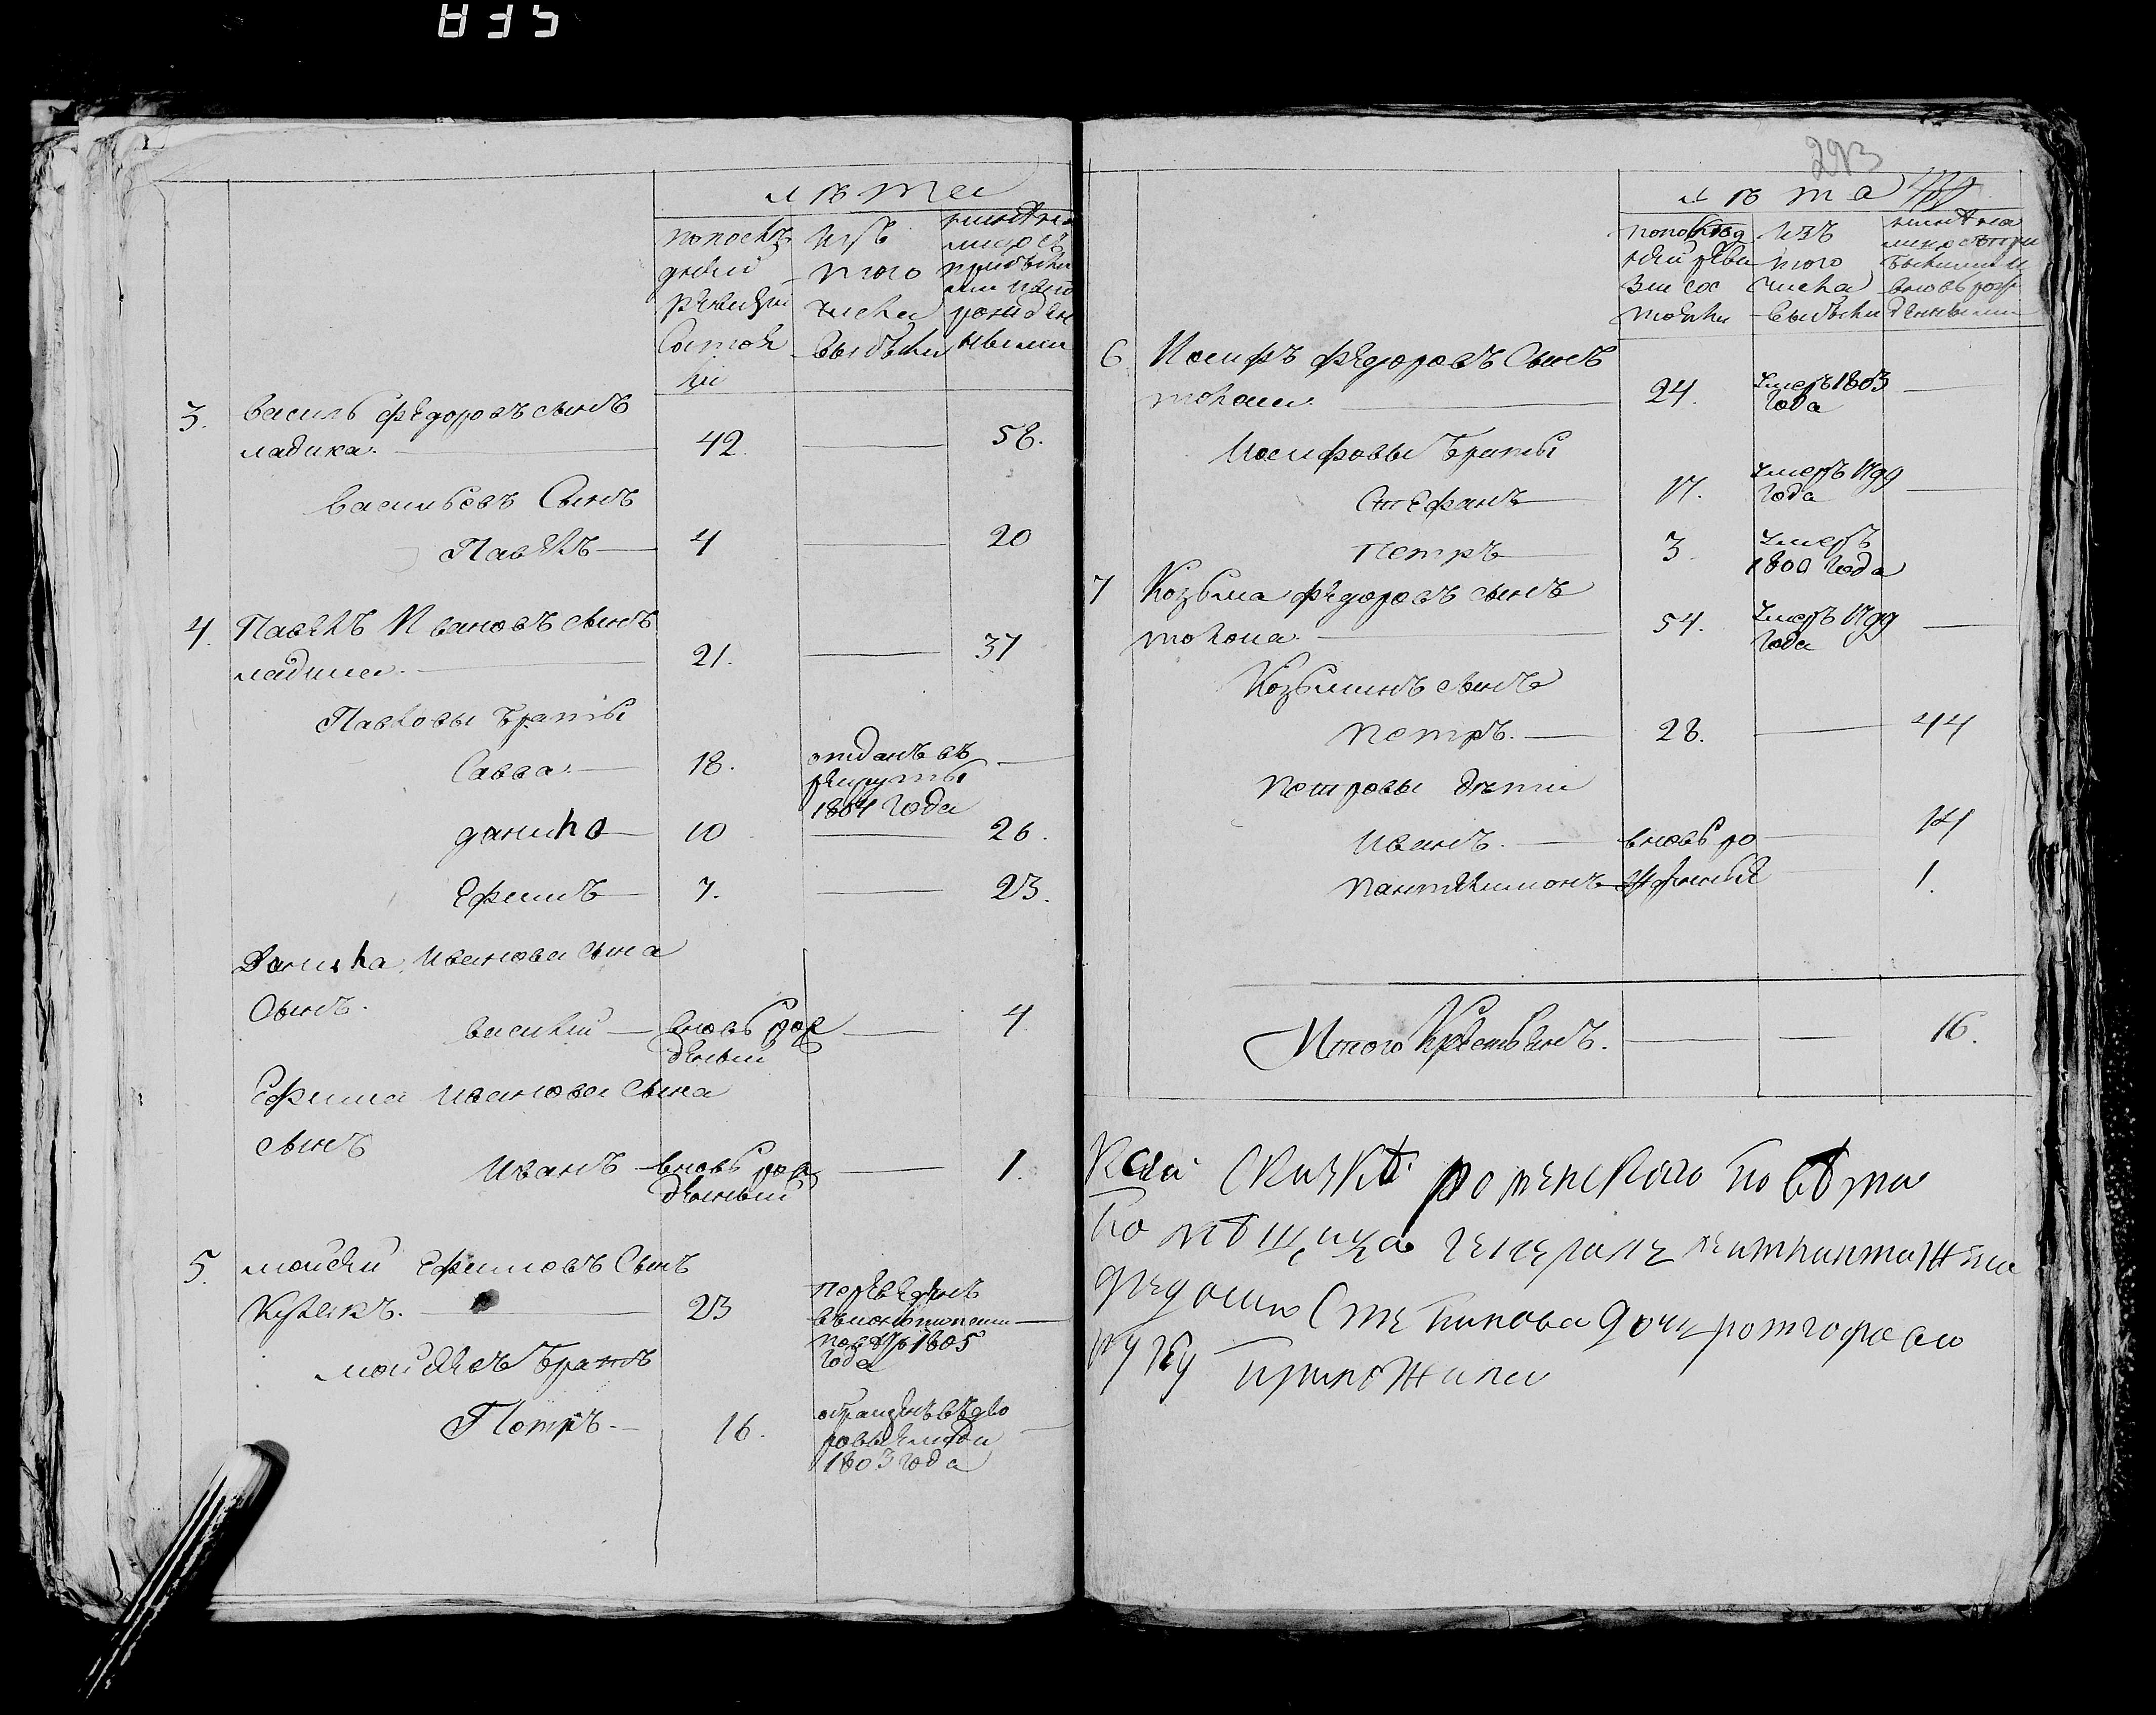 835
лѣта
попослѣ
дней
ревизіи
Состоя
ли
Изъ
того
числа
выбыли
нынѣ на
лицо съ
прибылы
ми
рожден
ными
3. василь федоровъ сынъ
ладика. 42. 58.
васильевъ Сынъ
Павелъ 4 20
4. Павелъ Ивановъ сынъ
ладика. 21. 37
Павловы братья
Савва. 18. отданъ въ
рекруты
1804 года
данило 10 26.
Ефимъ 7. 23.
Данила Иванова сына
Сынъ.
василій вновь рож
деный 4
Ефима Иванова Сына
сынъ
Иванъ вновь рож
деный 1.
5. мойсей Ефимовъ Сынъ
23 переведенъ
1805
года
мойсеевъ братъ
Петръ. 16. обращенъ въ дво
ровые люди
1803 года
293
лѣта
попослѣд
ней реви
зіи сос
тояли
изъ
того
числа
выбыли
нынѣ на
лицо съ при
былыми и
вновь рож
денными
6 Иосифъ федоровъ Сынъ
24. Умеръ 1803
года
Иосифовы братья
Стефанъ 17. Умеръ 1799
года
Петръ 3. Умеръ
1800 года
7 Козьма федоровъ сынъ
54. Умеръ 1799
года
Козьминъ сынъ
Петръ. 28. 44
Петровы дети
Иванъ. вновь ро 14
Пантелимонъ жденные 1.
Итого Крестьянъ. 16.
Ксей Скаске роменского повѣта
помѣщица генерале леитнантажена
Степанова дочь
руку приложила